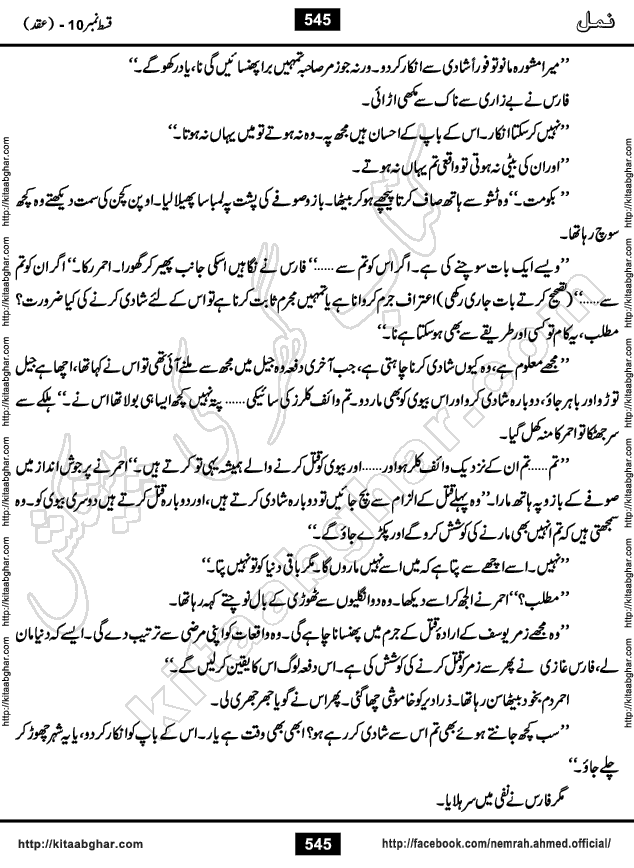 نمل
545
قسط نمبر 10 - (عقد)
’’میرا مشورہ مانو تو فوراً شادی سے انکار کر دو۔ ورنہ جو زمر صاحبہ تمہیں برا پھنسائیں گی نا، یاد رکھو گے۔‘‘
فارس نے بے زاری سے ناک سے مکھی اڑائی۔
’’نہیں کر سکتا انکار۔ اس کے باپ کے احسان ہیں مجھ پہ۔ وہ نہ ہوتے تو میں یہاں نہ ہوتا۔‘‘
’’اور ان کی بیٹی نہ ہوتی تو واقعی تم یہاں نہ ہوتے۔
’’بکومت۔‘‘ وہ ٹشو سے ہاتھ صاف کرتا پیچھے ہو کر بیٹھا۔ بازو صوفے کی پشت پہ لمبا سا پھیلا لیا۔ اوپن کچن کی سمت دیکھتے وہ کچھ
سوچ رہا تھا۔
’’ویسے ایک بات سوچنے کی ہے۔ اگر اس کو تم سے ......‘‘ فارس نے نگاہیں اسکی جانب پھیر کر گھورا۔ احمر رکا۔ ’’اگر ان کو تم
سے.....‘‘ (تصحیح کرتے بات جاری رکھی) اعتراف جرم کروانا ہے یا تمہیں مجرم ثابت کرنا ہے تو اس کے لئے شادی کرنے کی کیا ضرورت؟
مطلب، یہ کام تو کسی اور طریقے سے بھی ہو سکتا ہے نا۔‘‘
’’مجھے معلوم ہے، وہ کیوں شادی کرنا چاہتی ہے، جب آخری دفعہ وہ جیل میں مجھ سے ملنے آئی تھی تو اس نے کہا تھا، اچھا ہے جیل
توڑو اور باہر جاؤ، دوبارہ شادی کرو اور اس بیوی کو بھی مار دو۔ تم وائف کلرز کی سائیکی...... پتہ نہیں کچھ ایسا ہی بولا تھا اس نے۔‘‘ ہلکے سے
سر جھٹکا تو احمر کا منہ کھل گیا۔
’’تم.....تم ان کے نزدیک وائف کلر ہو اور......اور بیوی کو قتل کرنے والے ہمیشہ یہی تو کرتے ہیں۔‘‘ احمر نے پر جوش انداز میں
صوفے کے بازو پہ ہاتھ مارا۔ ’’وہ پہلے قتل کے الزام سے بچ جائیں تو دوبارہ شادی کرتے ہیں، اور دوبارہ قتل کرتے ہیں دوسری بیوی کو۔ وہ
سمجھتی ہیں کہ تم انہیں بھی مارنے کی کوشش کرو گے اور پکڑے جاؤ گے۔‘‘
’’نہیں۔ اسے اچھے سے پتا ہے کہ میں اسے نہیں ماروں گا۔ مگر باقی دنیا کو تو نہیں پتا۔‘‘
’’مطلب؟‘‘ احمر نے الجھ کر اسے دیکھا۔ وہ دو انگلیوں سے ٹھوڑی کے بال نوچتے کہہ رہا تھا۔
’’وہ مجھے زمر یوسف کے ارادۂ قتل کے جرم میں پھنسانا چاہے گی۔ وہ واقعات کو اپنی مرضی سے ترتیب دے گی۔ ایسے کہ دنیا مان
لے، فارس غازی نے پھر سے زمر کو قتل کرنے کی کوشش کی ہے۔ اس دفعہ لوگ اس کا یقین کر لیں گے۔‘‘
احمر دم بخود بیٹھا سن رہا تھا۔ ذرا دیر کو خاموشی چھا گئی۔ پھر اس نے گویا جھرجھری لی۔
’’سب کچھ جانتے ہوئے بھی تم اس سے شادی کر رہے ہو؟ ابھی بھی وقت ہے یار۔ اس کے باپ کو انکار کر دو، یا یہ شہر چھوڑ کر
چلے جاؤ۔‘‘
مگر فارس نے نفی میں سر ہلایا۔
http://kitaabghar.com
545
http://facebook.com/nemrah.ahmed.official/
http://kitaabghar.com http://kitaabghar.com http://kitaabghar.com http://kitaabghar.com http://kitaabghar.com http://kitaabghar.com
http://kitaabghar.com http://kitaabghar.com http://kitaabghar.com http://kitaabghar.com http://kitaabghar.com http://kitaabghar.com
کتاب گھر کی پیشکش
kitaabghar.com